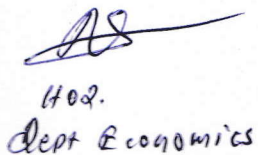 HOD.
Dept Economics